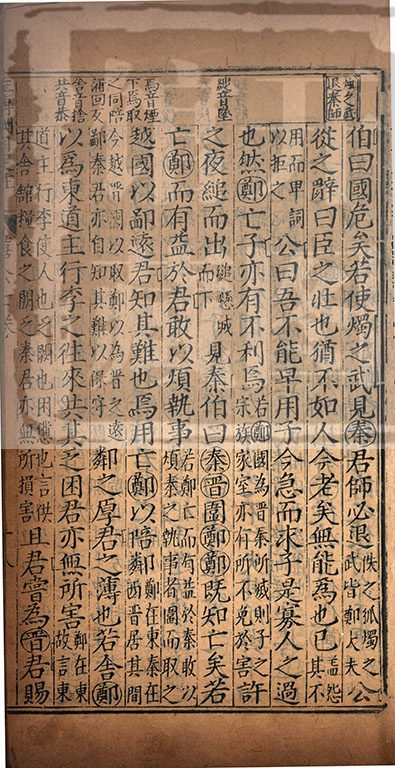 燭之武
退秦師
伯曰國危矣若使燭之武見秦君師必退佚之狐燭之武皆鄭大夫公
從之辭曰臣之壯也猶不如人今老矣無能爲也已蓋怨其不
用而卑詞以拒之公曰吾不能早用子今急而求子是寡人之過
也然鄭亡子亦有不利焉若鄭國為晉秦所滅則子之宗族家室亦有所不免於害許
縋音墜
之夜縋而出縋懸城而下見秦伯曰秦晉圍鄭鄭既知亡矣若
亡鄭而有益於君敢以煩執事若鄭亡而有益於秦敢以煩秦之執事者圖而取之
焉音煙
下焉取
越國以鄙遠君知其難也焉用亡鄭以陪鄰鄭在東秦在西晉居其間
之同陪
蒲回反
今越晉國以取鄭以為晉之遠鄙秦君亦自知其難以保守鄰之厚君之薄也若舍鄭
舍音捨
共音恭
以為東道主行李之往來共其乏困君亦無所害鄭在東故言東
道主行李使人也乏闕也困憊也言供其舍館糧食之闕乏秦君亦無所損害且君嘗為晉君賜
十八